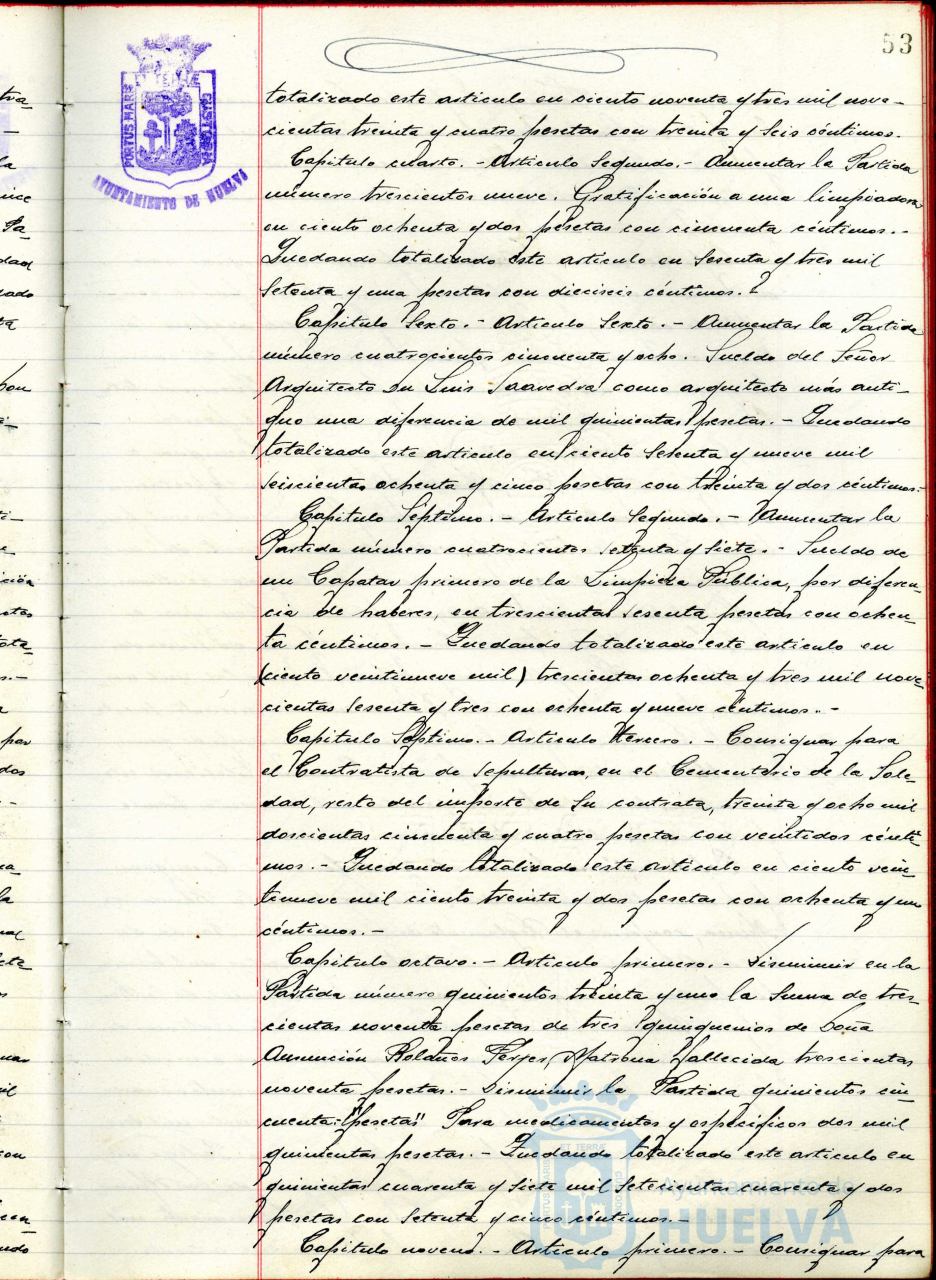 53
PORTUS MARIS ET TERRÆ CUSTODIA
AYUNTAMIENTO DE HUELVA
totalizado este articulo en ciento noventa y tres mil nove-
cientas treinta y cuatro pesetas con treinta y seis céntimos.
Capitulo cuarto. - Articulo Segundo. - Aumentar la Partida
número trescientos nueve. Gratificación a una limpiadora
en ciento ochenta y dos pesetas con cincuenta céntimos. -
Quedando totalizado este articulo en sesenta y tres mil
setenta y una pesetas con dieciseis céntimos.
Capitulo Sexto. - Articulo Sexto. - Aumentar la Partida
número cuatrocientos cincuenta y ocho. Sueldo del Señor
Arquitecto Dn Luis Saavedra como arquitecto más anti-
guo una diferencia de mil quinientas pesetas. - Quedando
totalizado este articulo en ciento setenta y nueve mil
seiscientas ochenta y cinco pesetas con treinta y dos céntimos. -
Capitulo Séptimo. - Articulo Segundo. - Aumentar la
Partida número cuatrocientos setenta y siete. - Sueldo de
un Capataz primero de la Limpieza Pública, por diferen-
cia de haberes, en trescientas sesenta pesetas con ochen-
ta céntimos. - Quedando totalizado este articulo en
(ciento veintinueve mil) trescientas ochenta y tres mil nove-
cientas sesenta y tres con ochenta y nueve céntimos. -
Capitulo Septimo. - Articulo tercero. - Consignar para
el Contratista de sepulturas, en el Cementerio de la Sole-
dad, resto del importe de su contrata, treinta y ocho mil
doscientas cincuenta y cuatro pesetas con veintidos cénti-
mos. - Quedando totalizado este articulo en ciento vein-
tinueve mil ciento treinta y dos pesetas con ochenta y un
céntimos. -
Capitulo octavo. - Articulo primero. - Disminuir en la
Partida número quinientos treinta y uno la suma de tres-
cientas noventa pesetas de tres quinquenios de Doña
Asunción Roldños, Matrona fallecida trescientas
noventa pesetas. - Disminuir la Partida quinientos cin-
cuenta. "pesetas" Para medicamentos y especificos dos mil
quinientas pesetas. - Quedando totalizado este articulo en
quinientas cuarenta y siete mil setecientas cuarenta y dos
pesetas con setenta y cinco céntimos. -
Capitulo noveno. - Articulo primero. - Consignar para
Ayuntamiento de
HUELVA